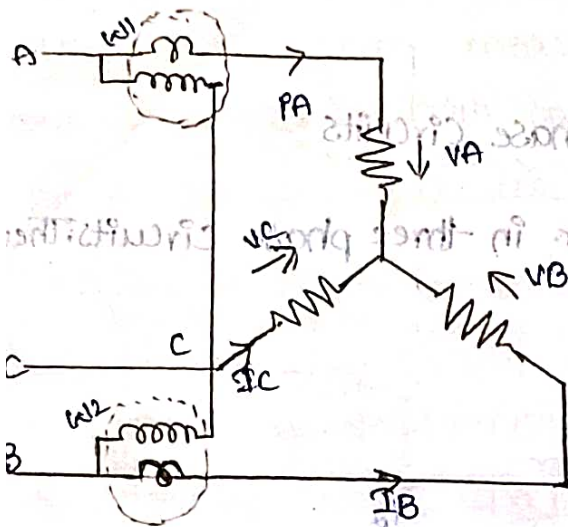 W1
A
PA
VA
VC
VB
C
C
IC
W2
B
IB